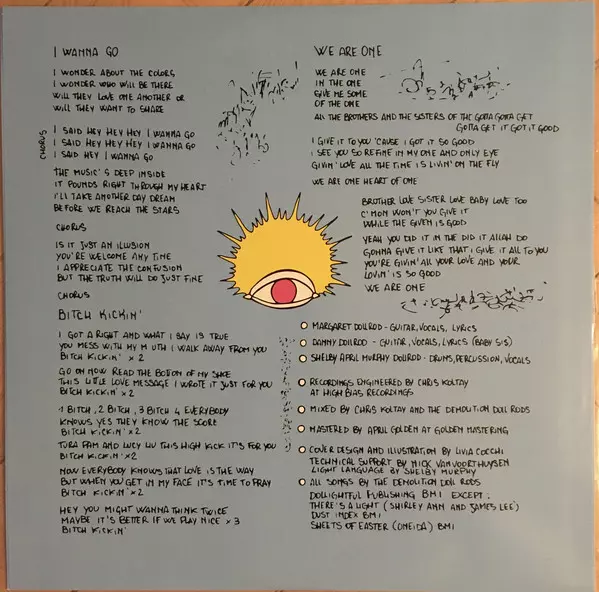 I WANNA GO
I WONDER ABOUT THE COLORS
I WONDER WHO WILL BE THERE
WILL THEY LOVE ONE ANOTHER OR
WILL THEY WANT TO SHARE
CHORUS
I SAID HEY HEY HEY I WANNA GO
I SAID HEY HEY HEY I WANNA GO
I SAID HEY I WANNA GO
THE MUSIC'S DEEP INSIDE
IT POUNDS RIGHT THROUGH MY HEART
I'LL TAKE ANOTHER DAY DREAM
BEFORE WE REACH THE STARS
CHORUS
IS IT JUST AN ILLUSION
YOU'RE WELCOME ANY TIME
I APPRECIATE THE CONFUSION
BUT THE TRUTH WILL DO JUST FINE
CHORUS
BITCH KICKIN'
I GOT A RIGHT AND WHAT I SAY IS TRUE
YOU MESS WITH MY MUTH I WALK AWAY FROM YOU
BITCH KICKIN' x 2
GO ON NOW READ THE BOTTOM OF MY SHOE
THIS LITTLE LOVE MESSAGE I WROTE IT JUST FOR YOU
BITCH KICKIN' x 2
1 BITCH, 2 BITCH, 3 BITCH 4 EVERYBODY
KNOWS YES THEY KNOW THE SCORE
BITCH KICKIN' x 2
TURA PAM AND LUCY LIU THIS HIGH KICK IT'S FOR YOU
BITCH KICKIN' x 2
NOW EVERYBODY KNOWS THAT LOVE IS THE WAY
BUT WHEN YOU GET IN MY FACE IT'S TIME TO PRAY
BITCH KICKIN' x 2
HEY YOU MIGHT WANNA THINK TWICE
MAYBE IT'S BETTER IF WE PLAY NICE x 3
BITCH KICKIN'
WE ARE ONE
WE ARE ONE
IN THE ONE
GIVE ME SOME
OF THE ONE
ALL THE BROTHERS AND THE SISTERS OF THE GOTTA GOTTA GET
GOTTA GET IT GOT IT GOOD
I GIVE IT TO YOU 'CAUSE I GOT IT SO GOOD
I SEE YOU SO REFINE IN MY ONE AND ONLY EYE
GIVIN' LOVE ALL THE TIME IS LIVIN' ON THE FLY
WE ARE ONE HEART OF ONE
BROTHER LOVE SISTER LOVE BABY LOVE TOO
C'MON WON'T YOU GIVE IT
WHILE THE GIVEN IS GOOD
YEAH YOU DID IT IN THE DID IT ALLAH DO
GONNA GIVE IT LIKE THAT I GIVE IT ALL TO YOU
YOU'RE GIVIN' ALL YOUR LOVE AND YOUR
LOVIN' IS SO GOOD
WE ARE ONE
MARGARET DOLLROD - GUITAR, VOCALS, LYRICS
DANNY DOLLROD - GUITAR, VOCALS, LYRICS (BABY SIS)
SHELBY APRIL MURPHY DOLLROD - DRUMS, PERCUSSION, VOCALS
RECORDINGS ENGINEERED BY CHRIS KOLTAY
AT HIGH BIAS RECORDINGS
MIXED BY CHRIS KOLTAY AND THE DEMOLITION DOLL RODS
MASTERED BY APRIL GOLDEN AT GOLDEN MASTERING
COVER DESIGN AND ILLUSTRATION BY LIVIA COCCHI
TECHNICAL SUPPORT BY NICK VANVOORTHUYSEN
LIGHT LANGUAGE BY SHELBY MURPHY
ALL SONGS BY THE DEMOLITION DOLL RODS
DOLLIGHTFUL PUBLISHING BMI EXCEPT:
THERE'S A LIGHT (SHIRLEY ANN AND JAMES LEE)
DUST INDEX BMI
SHEETS OF EASTER (ONEIDA) BMI